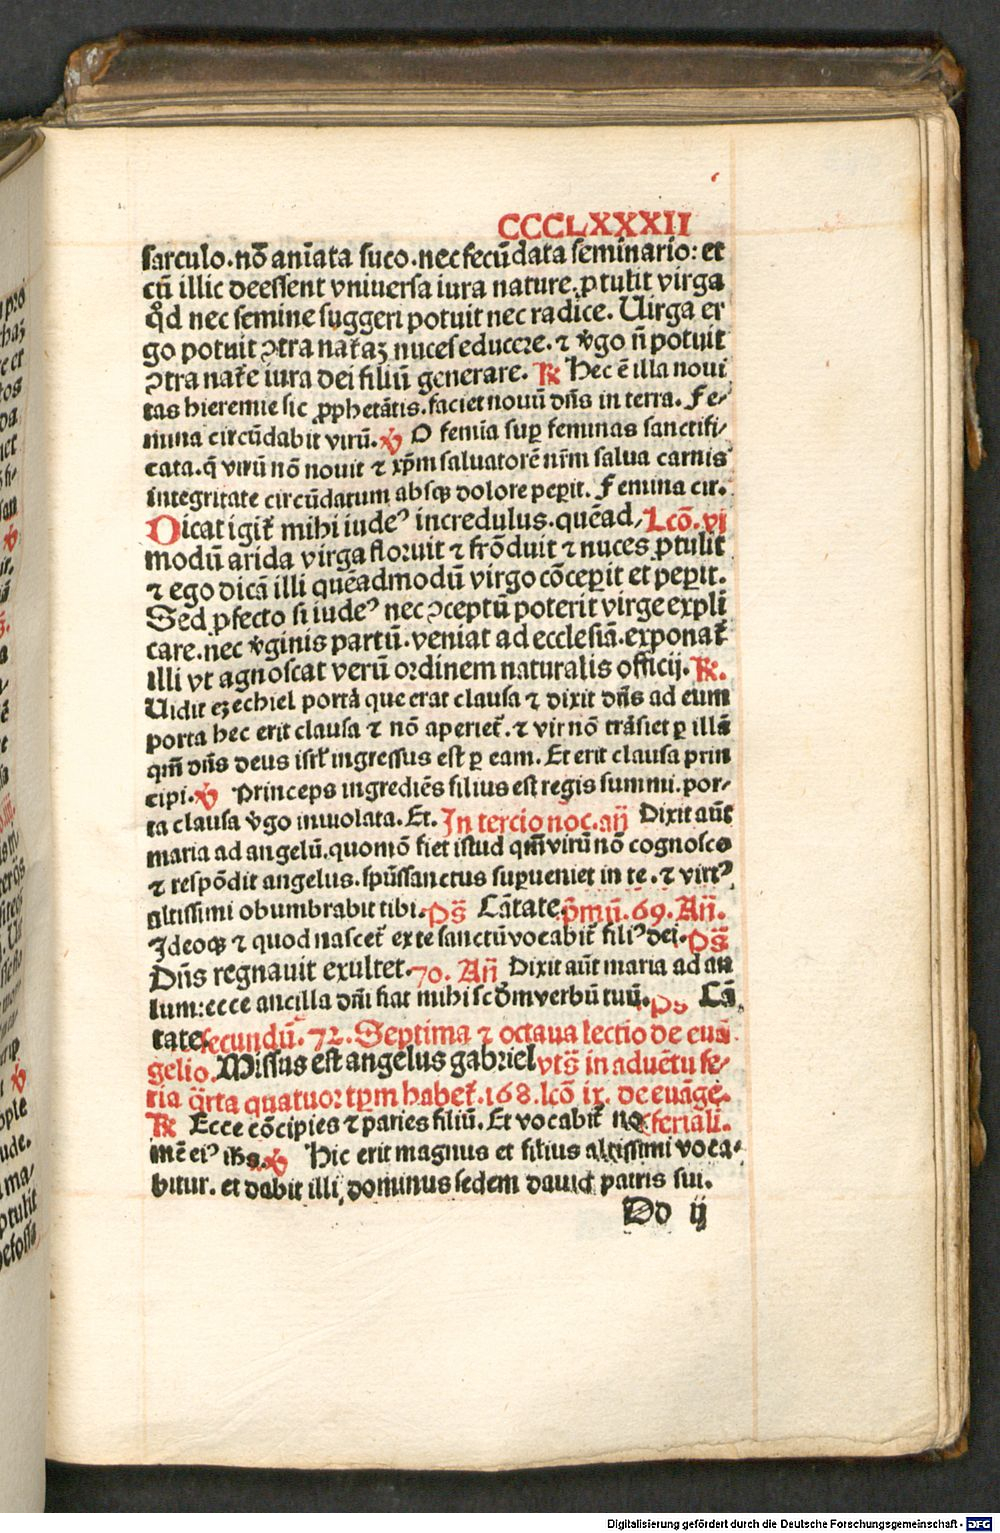 CCCLXXXII
sarculo. nō aniata suco. nec fecūdata seminario: et
cū illic deessent vniuersa iura nature. ꝓtulit virga
qd̓ nec semine suggeri potuit nec radice. Uirga er
go potuit ↄtra nat̄aꝫ nuces educere. ⁊ v̓go n̄ potuit
ↄtra nat̄e iura dei filiū generare. ℟ Hec ē illa noui
tas hieremie sic ꝓphetātis. faciet nouū dn̄s in terra. Fe-
mina circūdabit virū. ℣ O femīa suꝑ feminas sanctifi-
cata. q̄ virū nō nouit ⁊ xp̄m saluatorē nr̄m salua carnis
integritate circūdatum absqꝫ dolore peꝑit. Femina cir.
Dicat igit̄ mihi iudeꝰ incredulus. quēad- Lcō. vi
modū arida virga floruit ⁊ frōduit ⁊ nuces ꝓtulit
⁊ ego dicā illi quēadmodū virgo cōceꝑit et peꝑit.
Sed ꝓfecto si iudeꝰ nec ↄceptū poterit virge expli
care. nec v̓ginis partū. veniat ad ecclesiā. exponat̄
illi vt agnoscat verū ordinem naturalis officij. ℟.
Uidit eꝫechiel portā que erat clausa ⁊ dixit dn̄s ad eum
porta hec erit clausa ⁊ nō aperiet̄. ⁊ vir nō trāsiet ꝑ illā
qm̄ dn̄s deus isrl̄ ingressus est ꝑ eam. Et erit clausa prin
cipi. ℣ Princeps ingrediēs filius est regis summi. por-
ta clausa v̓go inuolata. Et. In tercio noc. an̄ Dixit aūt
maria ad angelū. quomō fiet istud qm̄ virū nō cognosco
⁊ respōdit angelus. spūssanctus suꝑueniet in te. ⁊ virtꝰ
altissimi obumbrabit tibi. Ps̄ Cātate. p̄mū. 69. An̄.
Ideoqꝫ ⁊ quod nascet̄ ex te sanctū vocabit̄ filiꝰ dei. Ps̄
Dn̄s regnauit exultet. 70. An̄ Dixit aūt maria ad an
lum: ecce ancilla dn̄i fiat mihi scd̓m verbū tuū. Ps Cā
tate. secundū. 72. Septima ⁊ octaua lectio de euā
gelio. Missus est angelus gabriel vts̄ in aduētu fe-
ria q̈rta quatuor tꝑm habet̄. 168. lcō ix. de euāge.
℟ Ecce cōcipies ⁊ paries filiū. Et vocabit̄ no feriali.
mē eiꝰ ih̄s. ℣ Hic erit magnus et filius altissimi voca-
bitur. et dabit illi dominus sedem dauid patris sui.
Dd ij
Digitalisierung gefördert durch die Deutsche Forschungsgemeinschaft - DFG